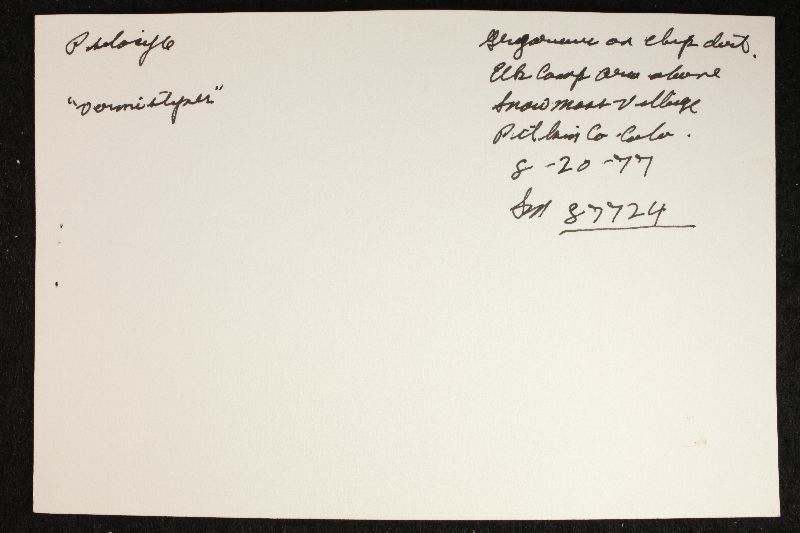 Psilocybe
"vermistipes"
Gregarious on chip dirt.
Elk Camp area above
Snowmass Village
Pitkin Co Colo.
8-20-77
Sm 87724